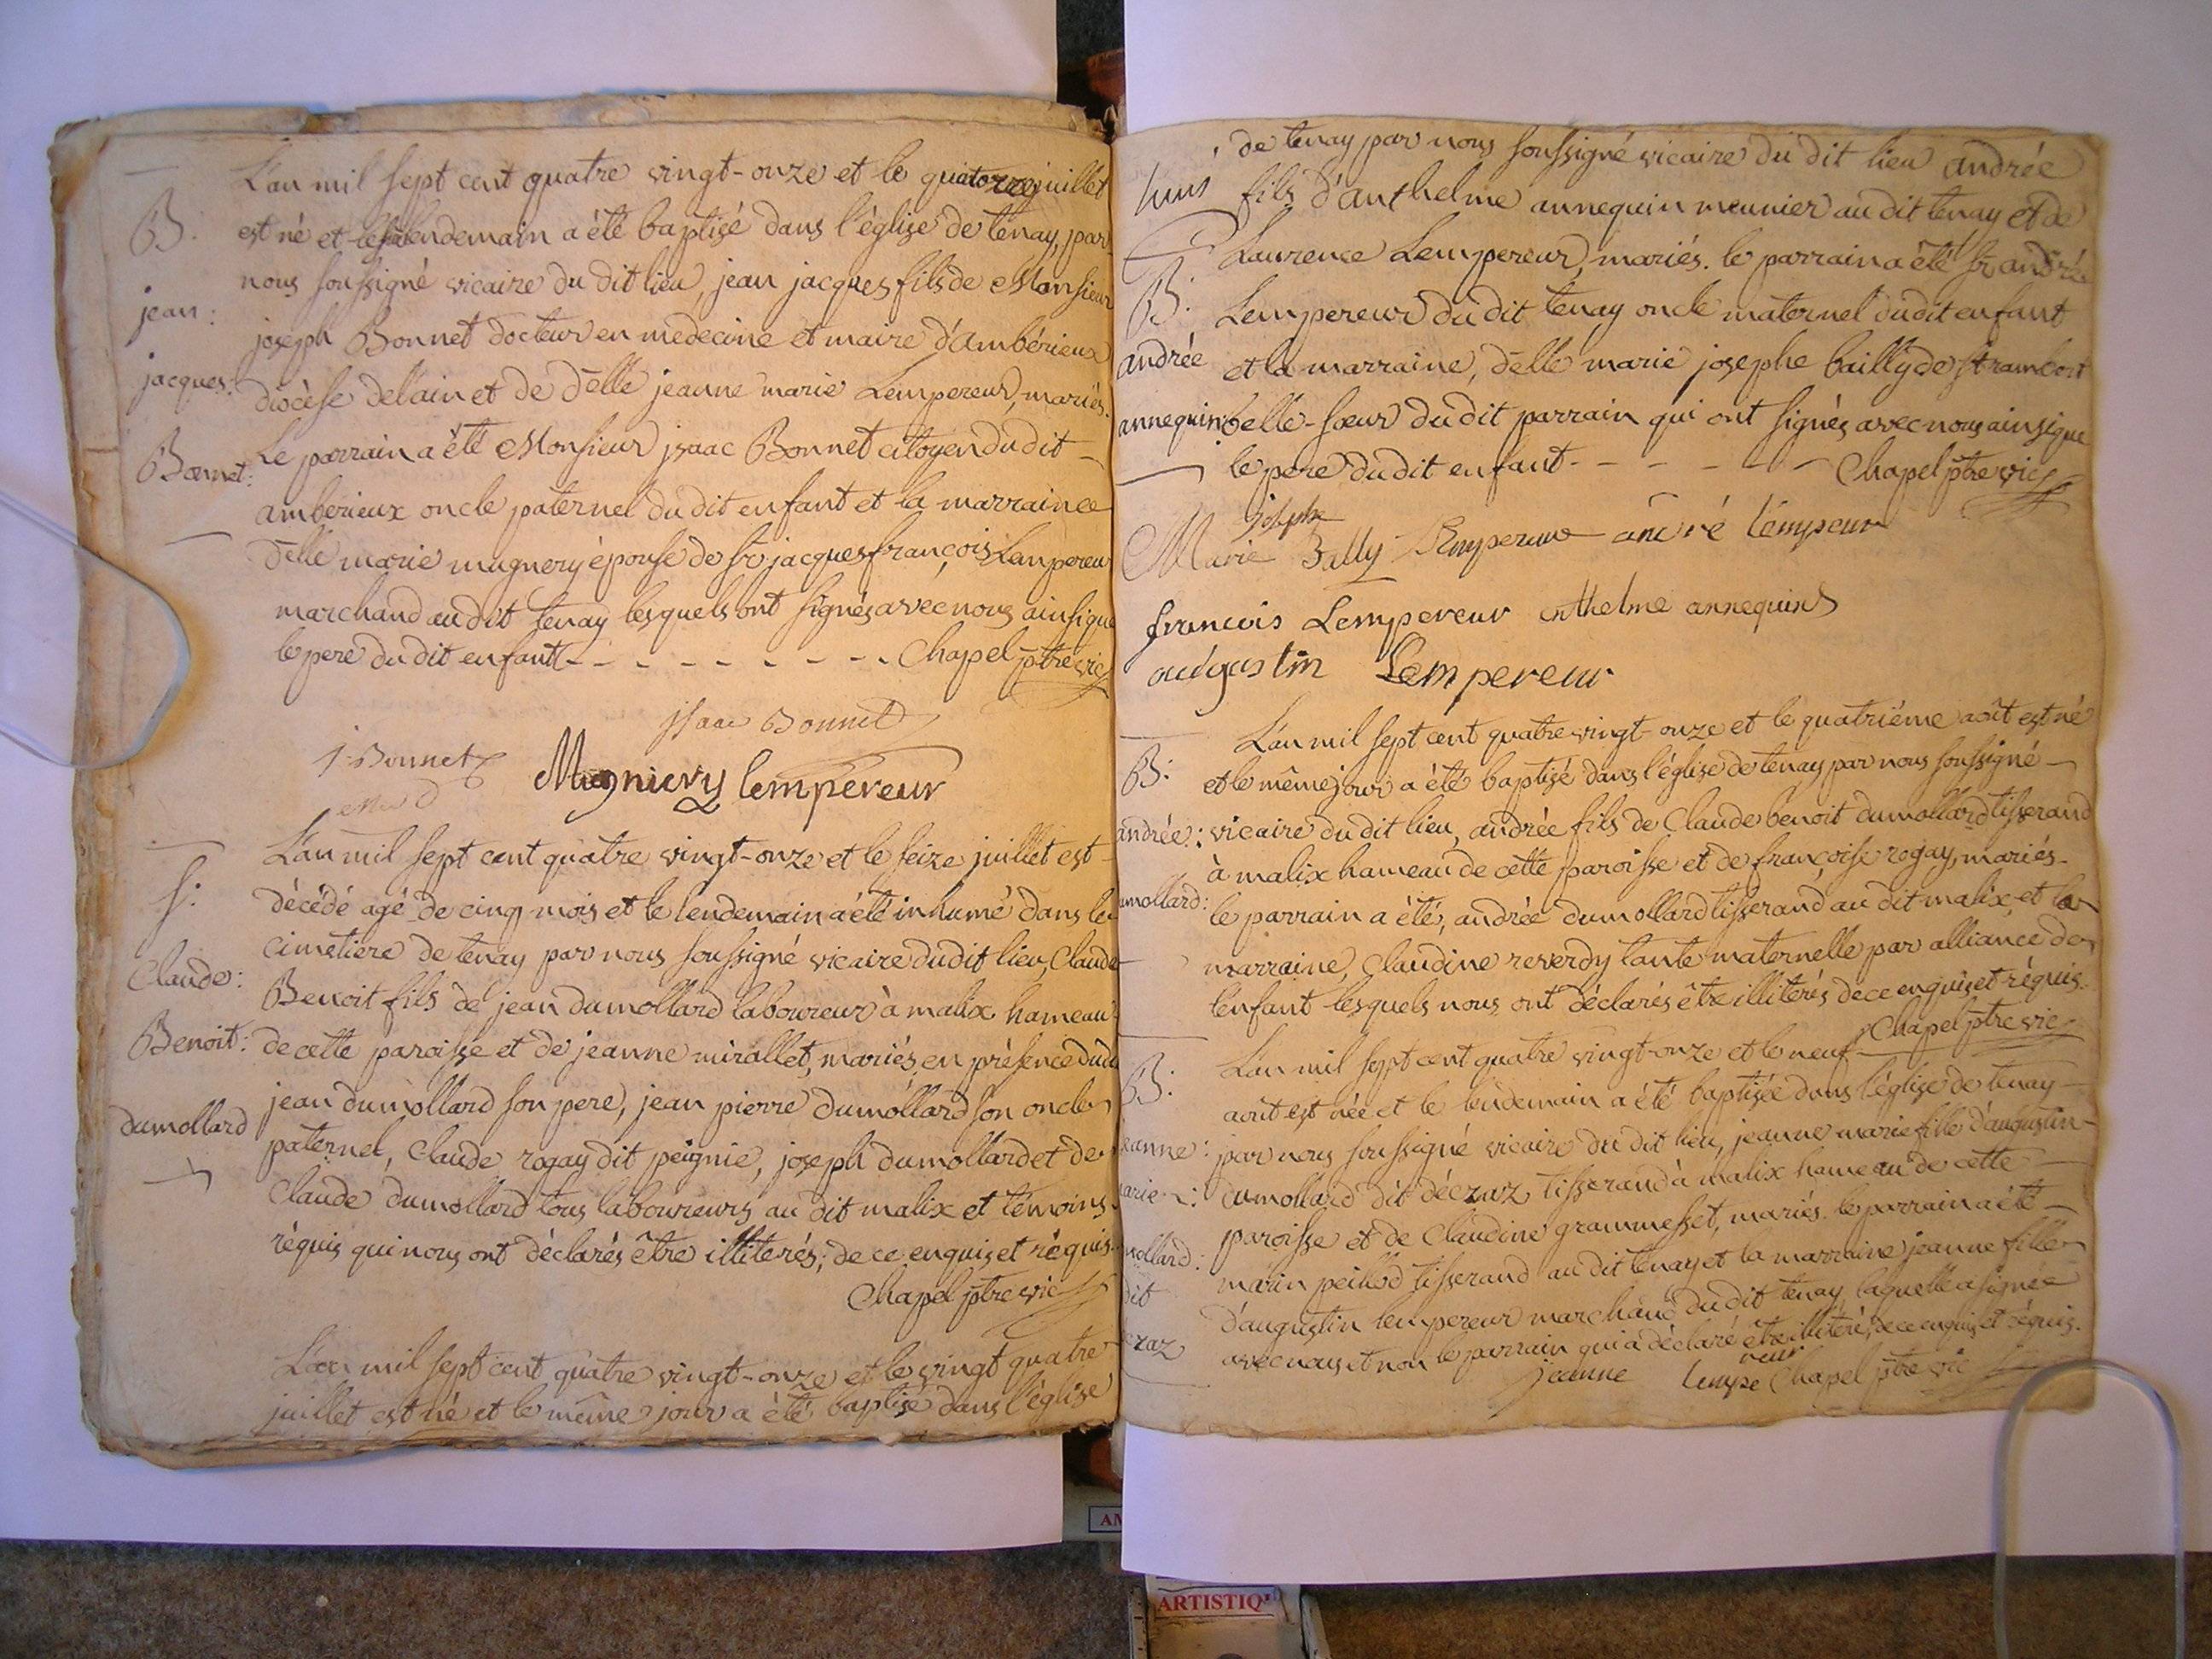 L'an mil sept cent quatre vingt-onze et le quatorze juillet
B:
est né et le lendemain a été baptisé dans l'église de tenay, par
nous soussigné vicaire du dit lieu, jean jacques fils de Monsieur
jean:
joseph Bonnet docteur en medecine et maire d'ambérieux
jacques:
diocèse de l'ain et de delle jeanne marie Lempereur, mariés.
Bonnet:
Le parrain a été Monsieur isaac Bonnet citoyen du dit
amberieux oncle paternel du dit enfant et la marraine
delle marie mugnery épouse de sr jacques françois Lempereur
marchand au dit tenay lesquels ont signés avec nous ainsi que
le pere du dit enfant - - - - - - - - - Chapel ptre vic
isaac Bonnet
j. Bonnet
Magniery lempereur
L'an mil sept cent quatre vingt-onze et le seize juillet est
S:
décédé agé de cinq mois et le lendemain a été inhumé dans le
cimetiere de tenay par nous soussigné vicaire du dit lieu, Claude
Claude:
Benoit fils de jean dumollard laboureur à malix hameau
Benoit:
de cette paroisse et de jeanne mirallet, mariés, en présence du dit
jean dumollard son pere, jean pierre dumollard son oncle
dumollard
paternel, Claude rogay dit peignie, joseph dumollard et de
Claude dumollard tous laboureurs au dit malix et témoins
réquis qui nous ont déclarés être illiterés, de ce enquis et réquis.
Chapel ptre vic
L'an mil sept cent quatre vingt-onze et le vingt quatre
juillet est né et le même jour a été baptisé dans l'église
de tenay par nous soussigné vicaire du dit lieu andrée
fils d'anthelme annequin meunier au dit tenay et de
Laurence Lempereur, mariés. le parrain a été sr andrée
B:
Lempereur du dit tenay oncle maternel du dit enfant
andrée
et la marraine, delle marie josephe bailly de st rambert
annequin:
belle-sœur du dit parrain qui ont signés avec nous ainsi que
le pere du dit enfant - - - - - - Chapel ptre vic
josephe
Marie Bally Lempereur andré lempeur
francois Lempereur anthelme annequin
augustin Lempereur
L'an mil sept cent quatre vingt-onze et le quatriéme août est né
B:
et le même jour a été baptisé dans l'église de tenay par nous soussigné
andrée:
vicaire du dit lieu, andrée fils de Claude benoit dumollard tisserand
à malix hameau de cette paroisse et de françoise rogay, mariés.
umollard:
le parrain a été, andrée dumollard tisserand au dit malix, et la
marraine, Claudine reverdy tante maternelle par alliance de
l'enfant lesquels nous ont déclarés être illiterés de ce enquis et réquis.
Chapel ptre vic
L'an mil sept cent quatre vingt-onze et le neuf
B:
août est née et le lendemain a été baptisée dans l'église de tenay
eanne:
par nous soussigné vicaire du dit lieu, jeanne marie fille d'augustin
arie:
dumollard dit déczaz tisserand à malix hameau de cette
paroisse et de Claudine grammesset, mariés. le parrain a été
mollard:
marin peillod tisserand au dit tenay et la marraine jeanne fille
dit
d'augustin lempereur marchand du dit tenay, laquelle a signée
czaz
avec nous et non le parrain qui a déclaré être illiteré, de ce enquis et réquis.
jeanne lempereur Chapel ptre vic
ARTISTIQ